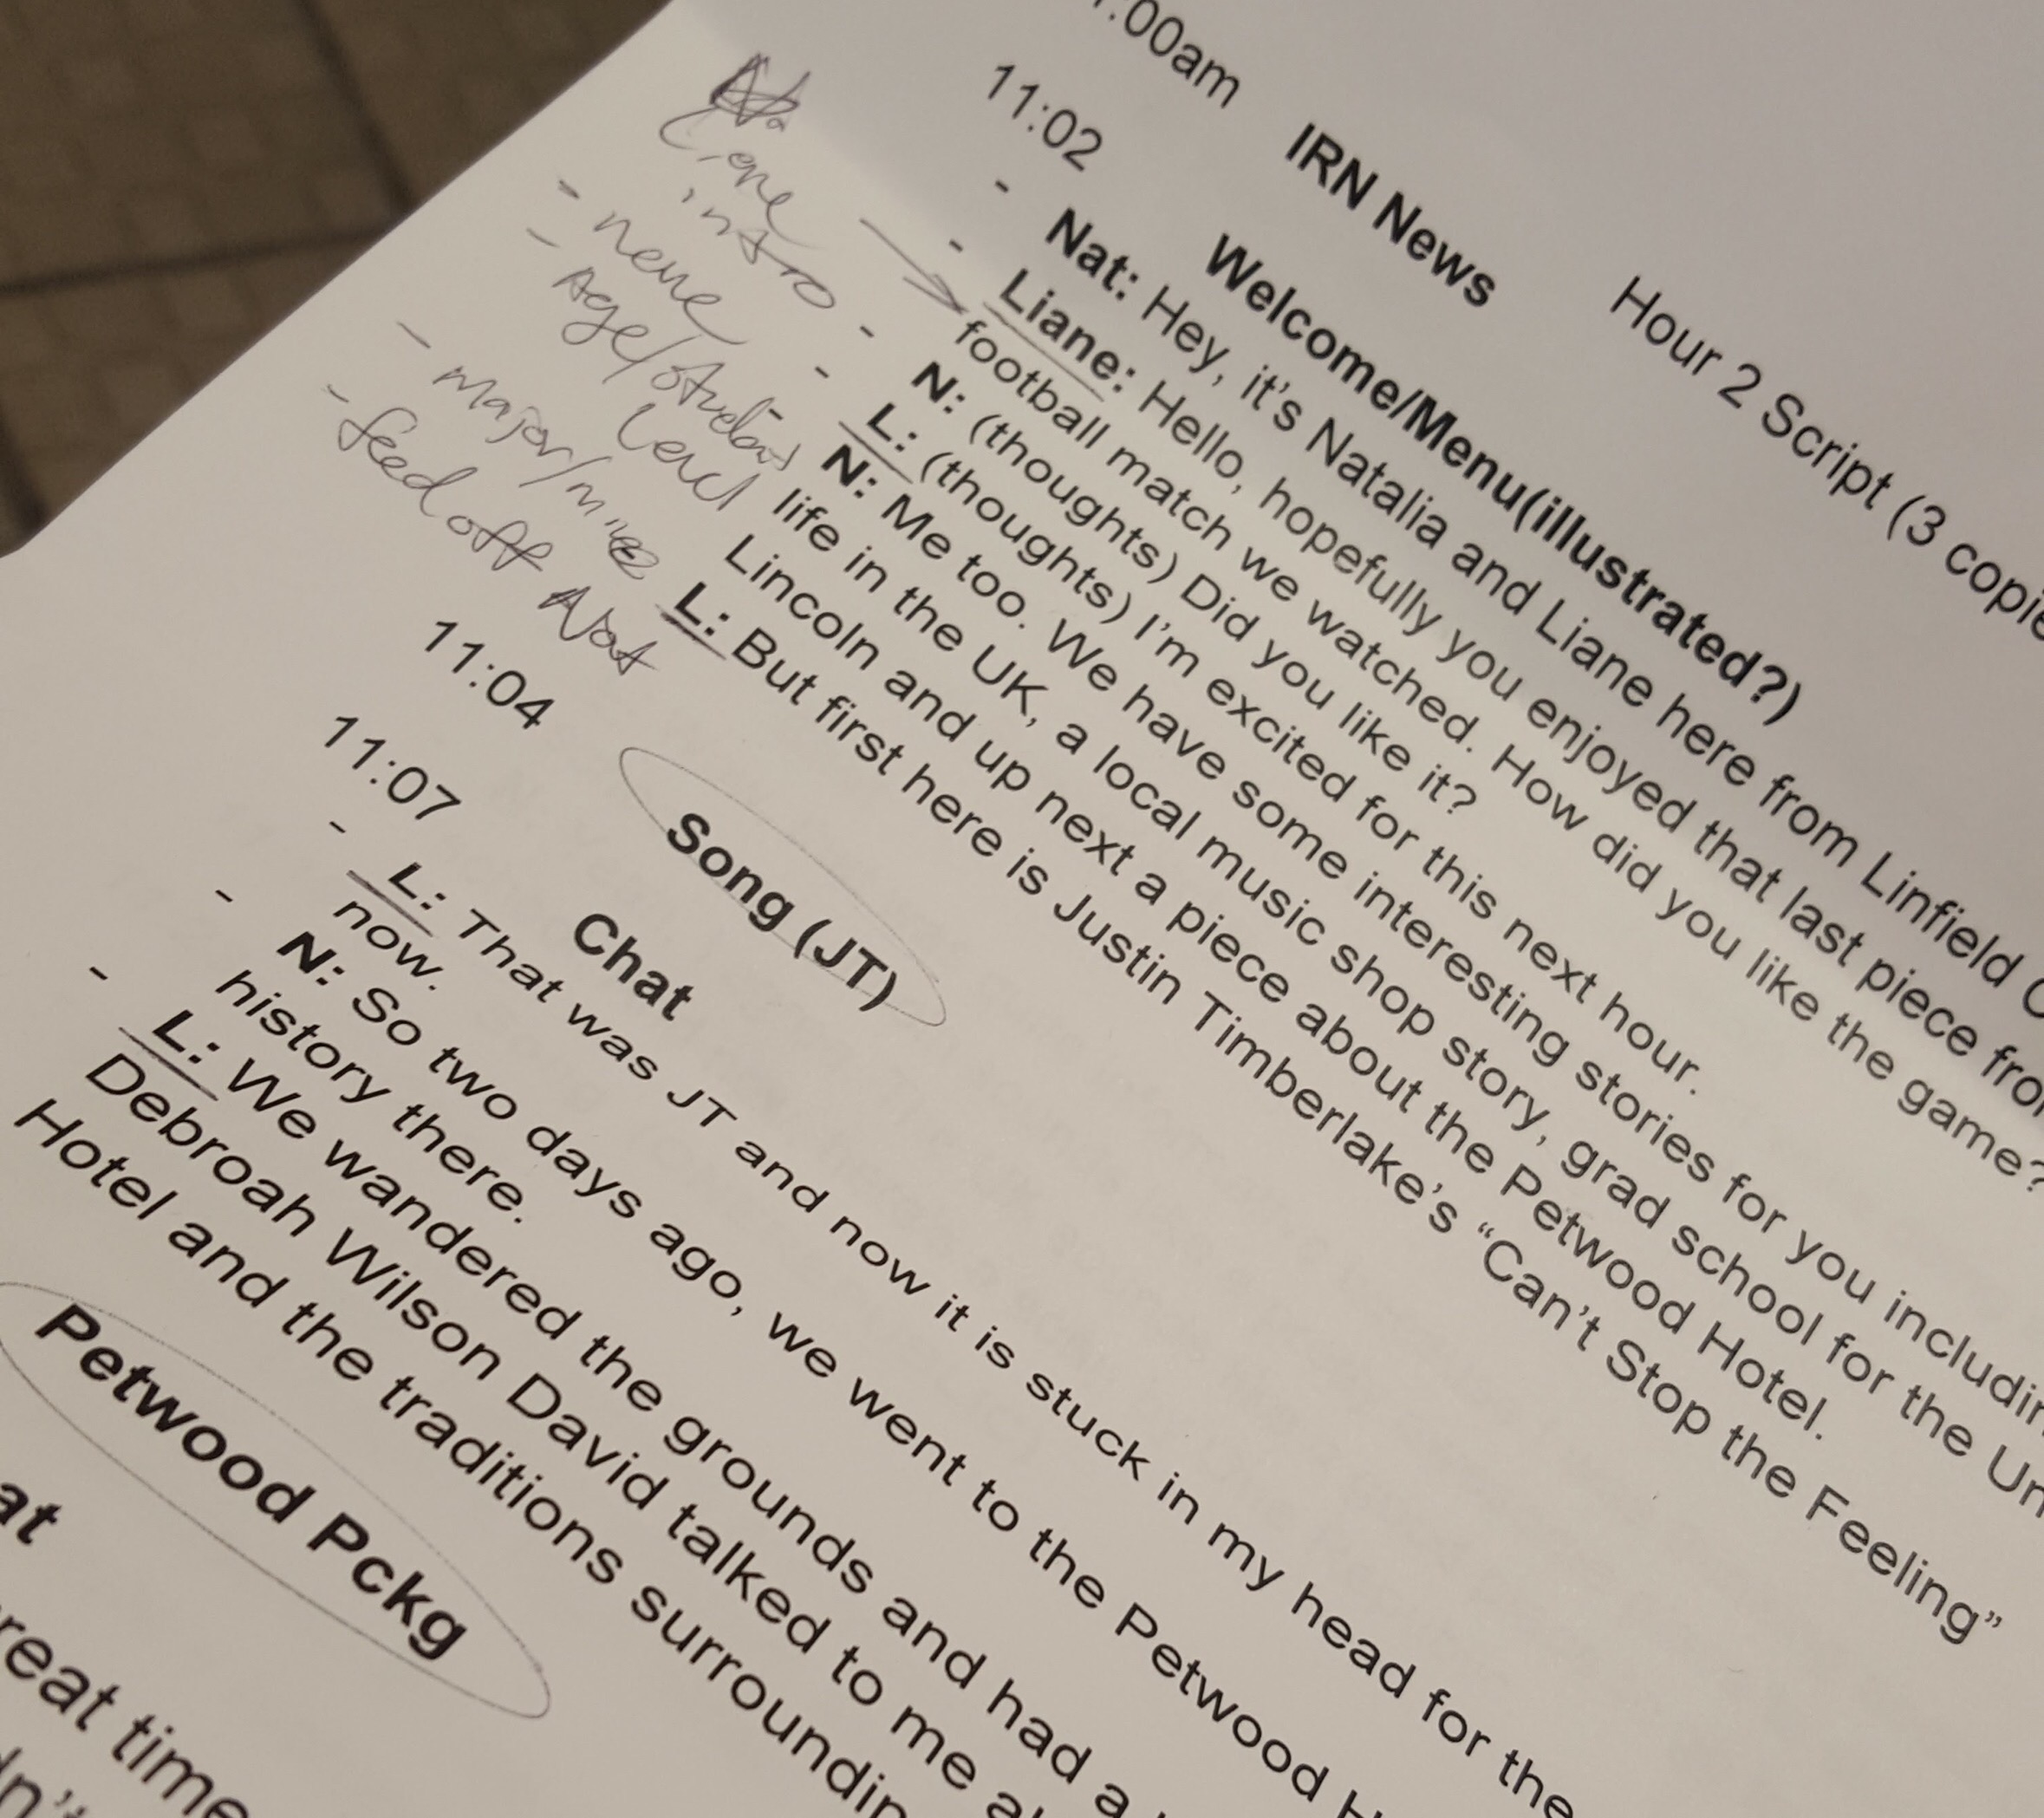 Hour 2 Script (3 copie
:00am IRN News
11:02 Welcome/Menu(illustrated?)
- Nat: Hey, it's Natalia and Liane here from Linfield C
- Liane: Hello, hopefully you enjoyed that last piece fro
football match we watched. How did you like the game?
- N: (thoughts) Did you like it?
- L: (thoughts) I'm excited for this next hour.
- N: Me too. We have some interesting stories for you includin
life in the UK, a local music shop story, grad school for the Un
Lincoln and up next a piece about the Petwood Hotel.
L: But first here is Justin Timberlake's “Can't Stop the Feeling”
intro
- name
- Age/student
level
- Major/minor
- feed off Nat
11:04 Song (JT)
11:07 Chat
- L: That was JT and now it is stuck in my head for the
now.
- N: So two days ago, we went to the Petwood H
history there.
- L: We wandered the grounds and had a
Debroah Wilson David talked to me a
Hotel and the traditions surroundin
Petwood Pckg
at
reat time
dn't